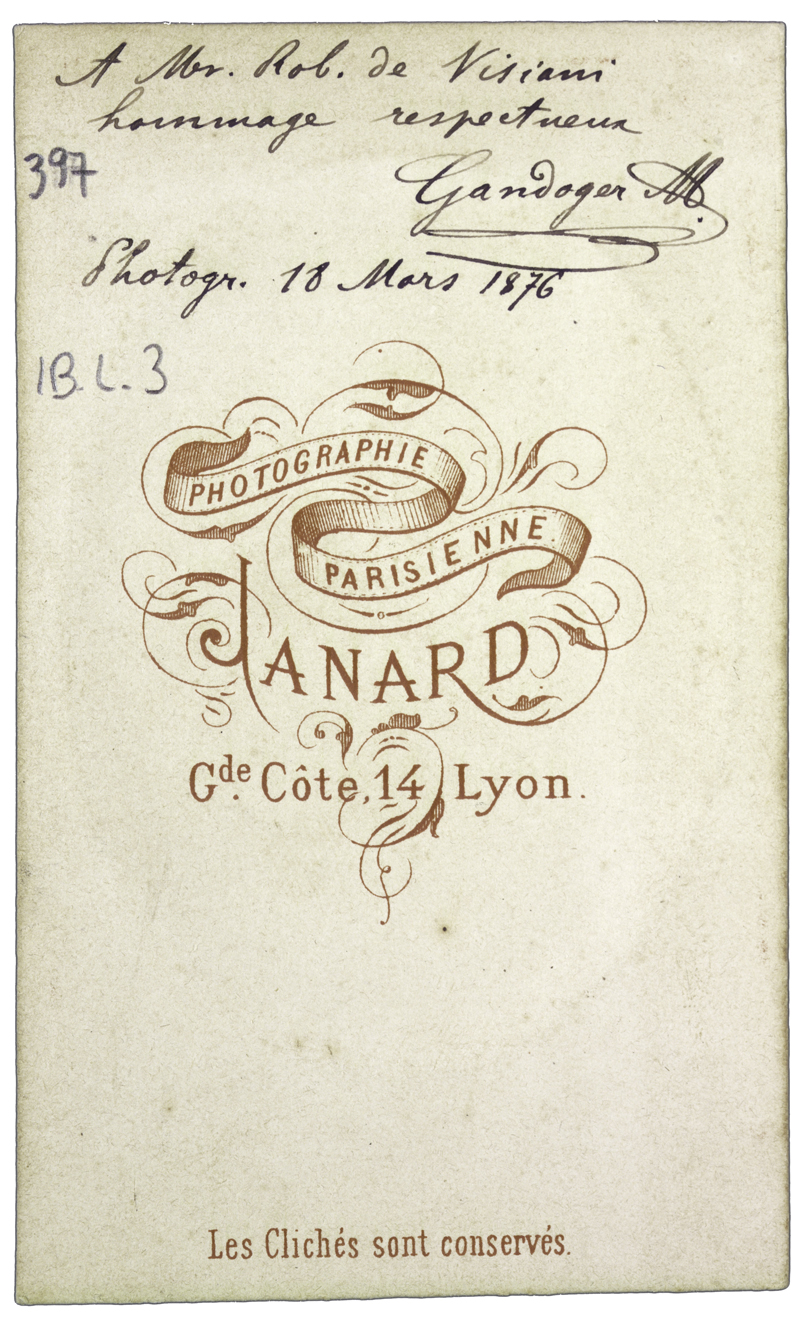 A Mr. Rob. de Visiani
hommage respectueux
397
Gandoger M.
Photogr. 18 Mars 1876
IB. L. 3
PHOTOGRAPHIE
PARISIENNE
JANARD
Gde. Côte, 14, Lyon.
Les Clichés sont conservés.